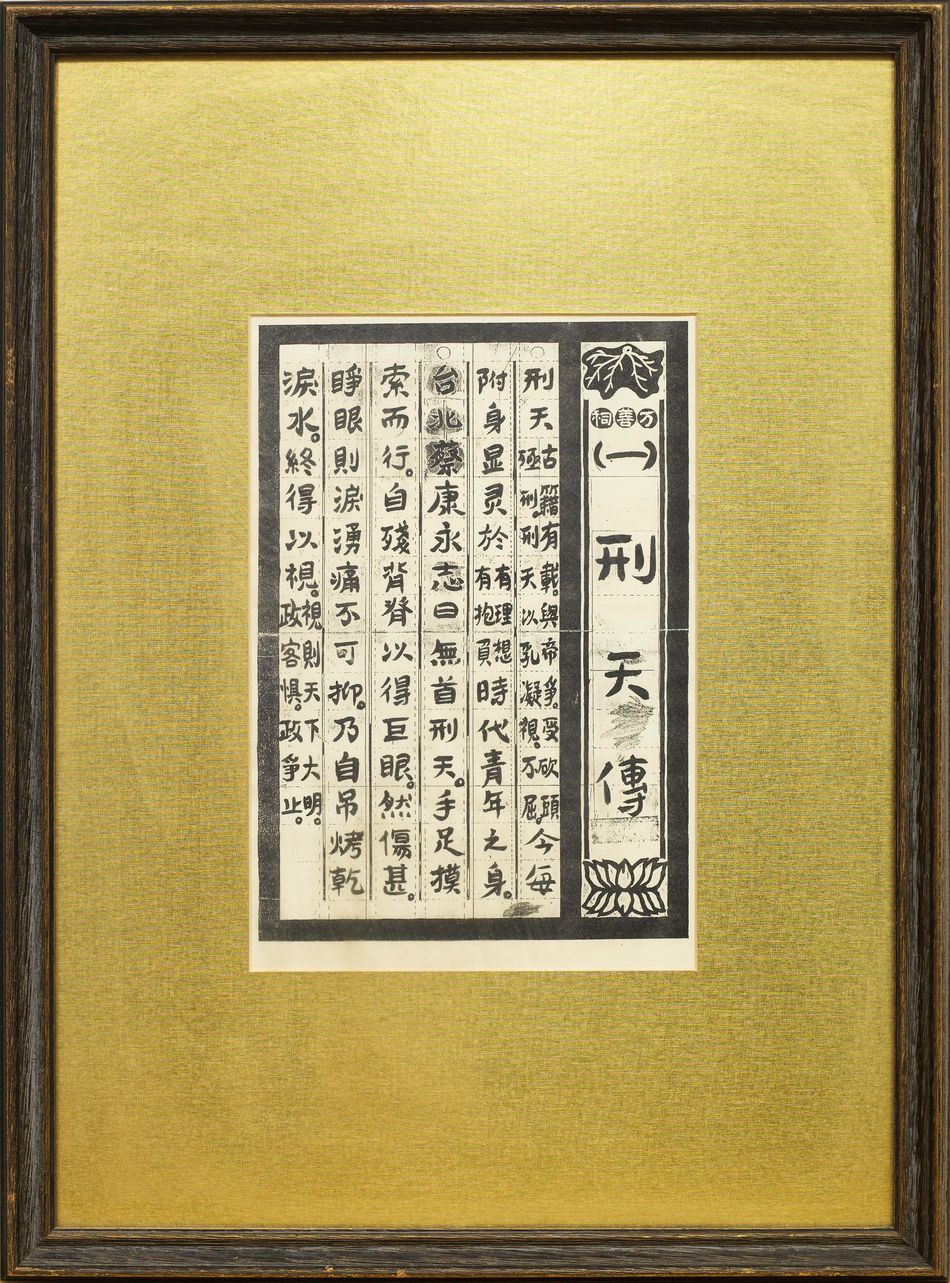 万善祠
(一)
刑天傳
刑天古籍有載。與帝爭。受砍頭殛刑。刑天以乳凝視。不屈。今每
附身显灵於有理想有抱負時代青年之身。
台北蔡康永志曰無首刑天。手足摸
索而行。自殘背脊以得巨眼。然傷甚。
睜眼則淚湧痛不可抑。乃自吊烤乾
淚水。終得以視。視則天下大明。政客惧。政爭止。